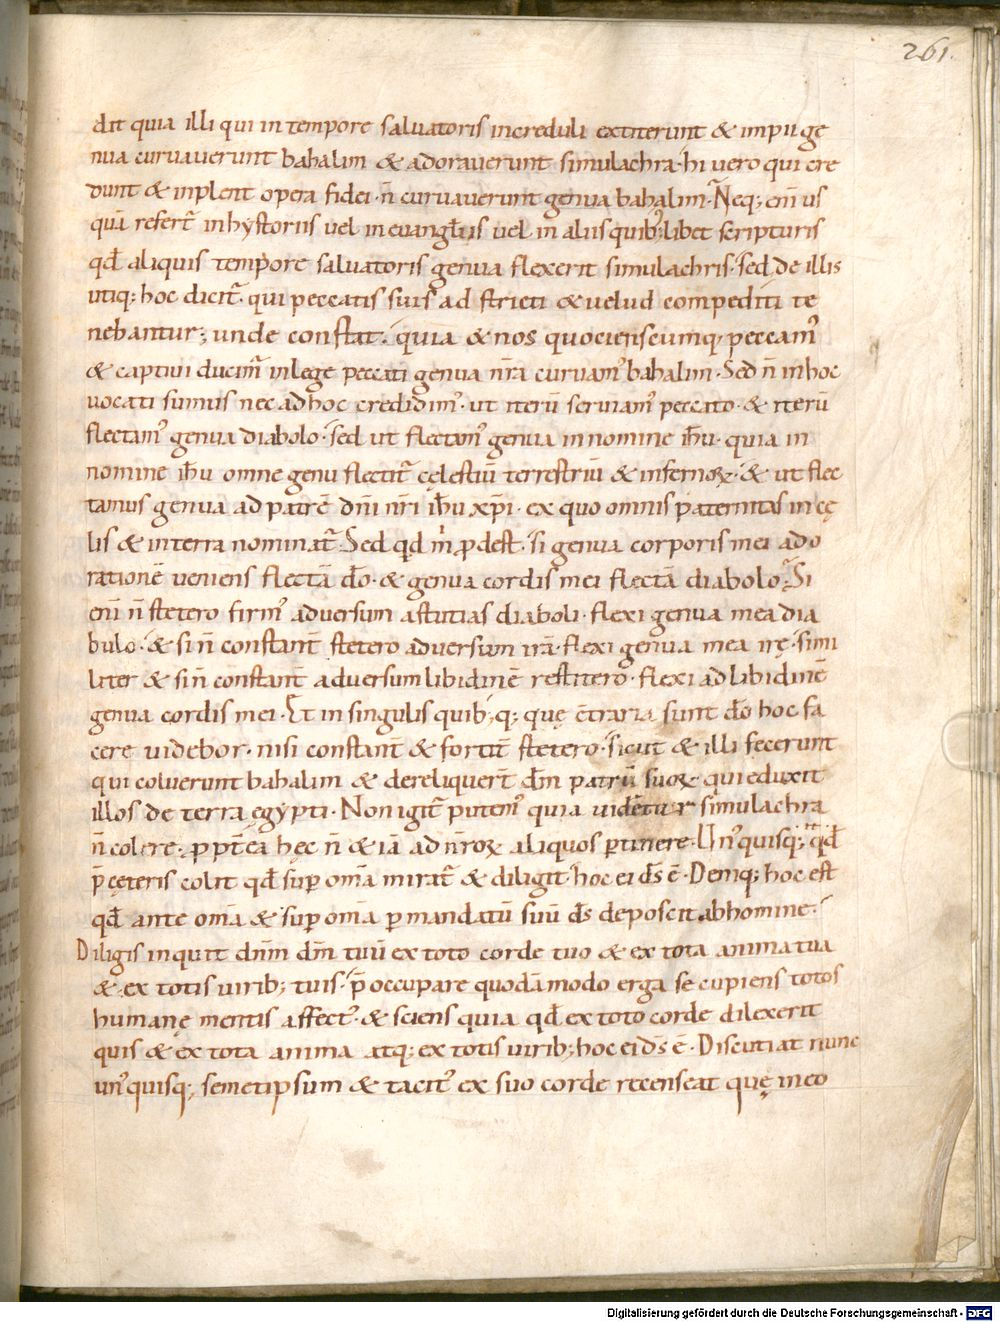 261.
dit quia illi qui in tempore salvatoris increduli extiterunt & impii ge
nua curvaverunt bahalim & adoraverunt simulachra· hi vero qui cre
dunt & inplent opera fidei· n̄ curvaverunt genua bahalim· Neq; eni᷒ us
quā refert᷑ in hystoriis vel in evangl̄iis vel in aliis quib;libet scripturis
qđ aliquis tempore salvatoris genua flexerit simulachris· sed de illis
utiq; hoc dicit᷑· qui peccatis suis adstricti & velud compediti te
nebantur; unde constat· quia & nos quocienscumq; peccam᷒
& captivi ducim᷒ in lege peccati genua nr̄a curvam᷒ bahalim· Sed n̄ in hoc
vocati sumus nec ad hoc credidim᷒· ut iterū serviam᷒ peccato· & iterū
flectam᷒ genua diabolo· sed ut flectam᷒ genua in nomine ih̄u· quia in
nomine ih̄u omne genu flectit᷑ cęlestiū terrestriū & infernoꝝ· & ut flec
tamus genua ad patrē dn̄i nr̄i ih̄u xp̄i· ex quo omnis paternitas in cę
lis & in terra nominat᷑· Sed qđ m̄ ꝓdest· si genua corporis mei ad o
rationē veniens flectā dō· & genua cordis mei flectā diabolo· Si
eni᷒ n̄ stetero firm᷒ adversum astutias diaboli· flexi genua mea dia
bulo· & si n̄ constant᷑ stetero adversum irā· flexi genua mea irę· simi
liter & si n̄ constant᷑ adversum libidinē restitero· flexi ad libidinē
genua cordis mei· Et in singulis quib;q; quę c̄traria sunt dō hoc fa
cere videbor· nisi constant᷑ & fortit᷑ stetero· sicut & illi fecerunt
qui coluerunt bahalim & dereliquer̄t dm̄ patrū suoꝝ qui eduxit
illos de terra ęgypti· Non igit᷑ putem᷒ quia videtur simulachra
n̄ colere· ꝓpt̄ea hęc n̄ & iā ad nr̄oꝝ aliquos ꝑtinere· Un᷒quisq; qđ
p̄ cęteris colit qđ suꝑ om̄a mirat᷑ & diligit· hoc ei ds̄ ē· Deniq; hoc est
qđ ante om̄a & suꝑ om̄a ꝑ mandatū suū ds̄ deposcit ab homine·
Diligis inquit dn̄m dm̄ tuū ex toto corde tuo & ex tota anima tua
& ex totis virib; tuis· p̄occupare quodā modo erga se cupiens totos
humanę mentis affect᷒· & sciens quia qđ ex toto corde dilexerit
quis & ex tota anima atq; ex totis virib; hoc ei ds̄ ē· Discutiat nunc
un᷒quisq; semetipsum & tacit᷒ ex suo corde recenseat quę in eo
Digitalisierung gefördert durch die Deutsche Forschungsgemeinschaft - DFG